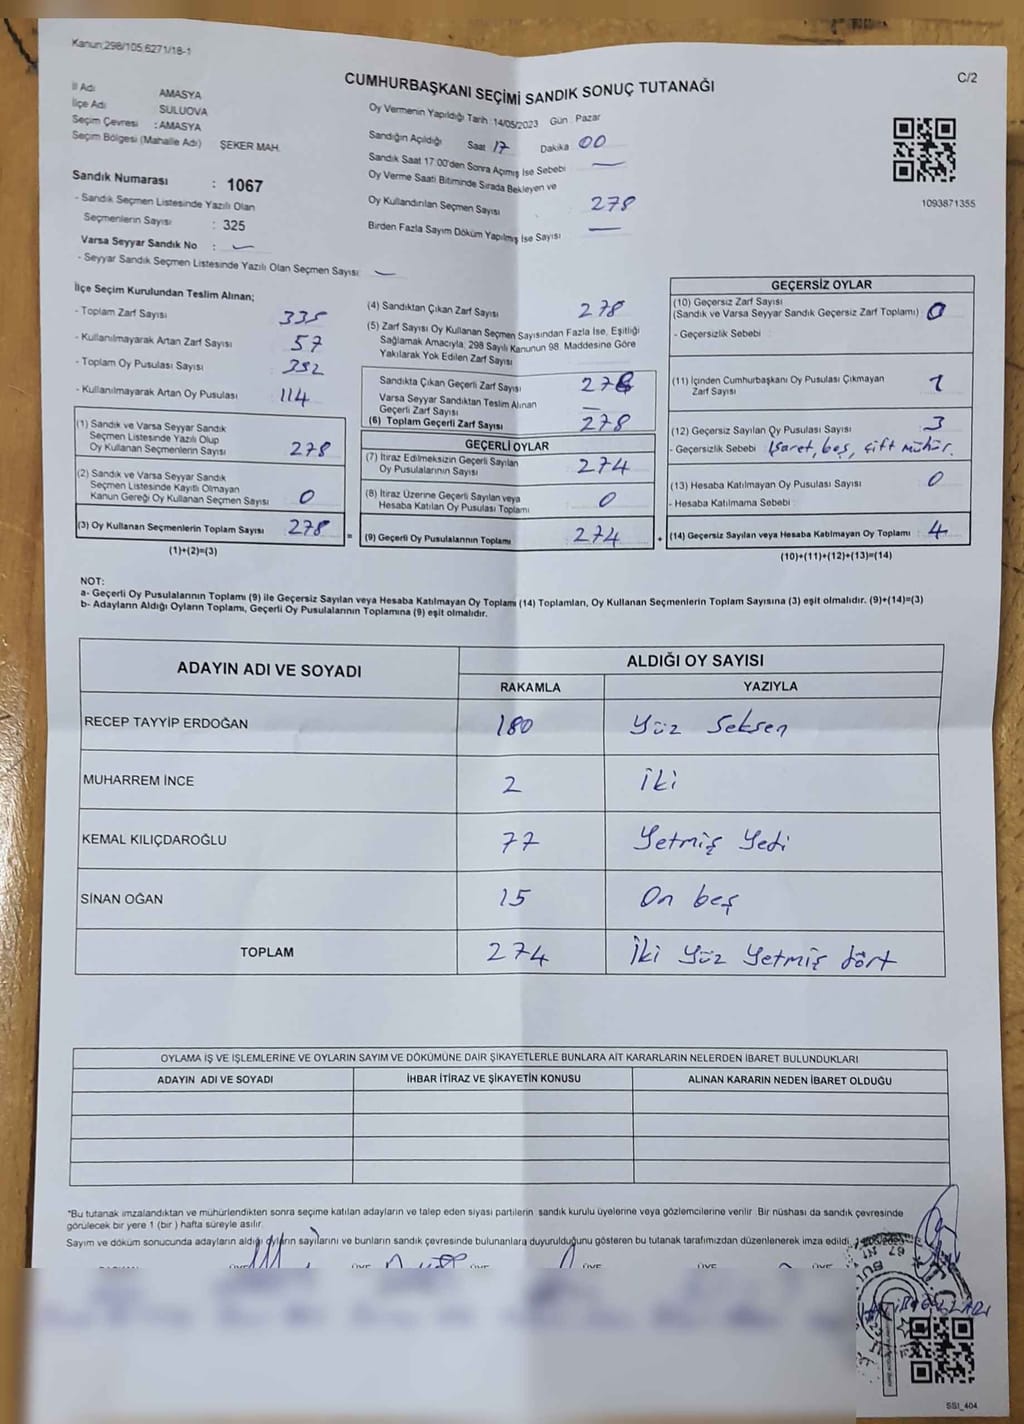 Kanun:298/105,6271/18-1
C/2
CUMHURBAŞKANI SEÇİMİ SANDIK SONUÇ TUTANAĞI
İl Adı AMASYA
İlçe Adı SULUOVA
Seçim Çevresi : AMASYA
Seçim Bölgesi (Mahalle Adı) ŞEKER MAH.
Sandık Numarası : 1067
- Sandık Seçmen Listesinde Yazılı Olan
Seçmenlerin Sayısı : 325
Varsa Seyyar Sandık No : —
- Seyyar Sandık Seçmen Listesinde Yazılı Olan Seçmen Sayısı: —
Oy Vermenin Yapıldığı Tarih : 14/05/2023 Gün : Pazar
Sandığın Açıldığı Saat 17 Dakika 00
Sandık Saat 17:00'den Sonra Açımış İse Sebebi —
Oy Verme Saati Bitiminde Sırada Bekleyen ve
Oy Kullandırılan Seçmen Sayısı 278
Birden Fazla Sayım Döküm Yapılmış İse Sayısı —
1093871355
İlçe Seçim Kurulundan Teslim Alınan;
- Toplam Zarf Sayısı 335
- Kullanılmayarak Artan Zarf Sayısı 57
- Toplam Oy Pusulası Sayısı 392
- Kullanılmayarak Artan Oy Pusulası 114
(1) Sandık ve Varsa Seyyar Sandık
Seçmen Listesinde Yazılı Olup
Oy Kullanan Seçmenlerin Sayısı 278
(2) Sandık ve Varsa Seyyar Sandık
Seçmen Listesinde Kayıtlı Olmayan
Kanun Gereği Oy Kullanan Seçmen Sayısı 0
(3) Oy Kullanan Seçmenlerin Toplam Sayısı 278
(1)+(2)=(3)
(4) Sandıktan Çıkan Zarf Sayısı 278
(5) Zarf Sayısı Oy Kullanan Seçmen Sayısından Fazla İse, Eşitliği
Sağlamak Amacıyla, 298 Sayılı Kanunun 98. Maddesine Göre
Yakılarak Yok Edilen Zarf Sayısı
Sandıkta Çıkan Geçerli Zarf Sayısı 278
Varsa Seyyar Sandıktan Teslim Alınan
Geçerli Zarf Sayısı —
(6) Toplam Geçerli Zarf Sayısı 278
GEÇERLİ OYLAR
(7) İtiraz Edilmeksizin Geçerli Sayılan
Oy Pusulalarının Sayısı 274
(8) İtiraz Üzerine Geçerli Sayılan veya
Hesaba Katılan Oy Pusulası Toplamı 0
= (9) Geçerli Oy Pusulalarının Toplamı 274
GEÇERSİZ OYLAR
(10) Geçersiz Zarf Sayısı
(Sandık ve Varsa Seyyar Sandık Geçersiz Zarf Toplamı) 0
- Geçersizlik Sebebi :
(11) İçinden Cumhurbaşkanı Oy Pusulası Çıkmayan
Zarf Sayısı 1
(12) Geçersiz Sayılan Oy Pusulası Sayısı 3
- Geçersizlik Sebebi İşaret, boş, çift mühür.
(13) Hesaba Katılmayan Oy Pusulası Sayısı 0
- Hesaba Katılmama Sebebi :
+ (14) Geçersiz Sayılan veya Hesaba Katılmayan Oy Toplamı : 4
(10)+(11)+(12)+(13)=(14)
NOT:
a- Geçerli Oy Pusulalarının Toplamı (9) ile Geçersiz Sayılan veya Hesaba Katılmayan Oy Toplamı (14) Toplamları, Oy Kullanan Seçmenlerin Toplam Sayısına (3) eşit olmalıdır. (9)+(14)=(3)
b- Adayların Aldığı Oyların Toplamı, Geçerli Oy Pusulalarının Toplamına (9) eşit olmalıdır.
ADAYIN ADI VE SOYADI ALDIĞI OY SAYISI
RAKAMLA YAZIYLA
RECEP TAYYİP ERDOĞAN 180 Yüz Seksen
MUHARREM İNCE 2 İki
KEMAL KILIÇDAROĞLU 77 Yetmiş Yedi
SİNAN OĞAN 15 On beş
TOPLAM 274 İki Yüz Yetmiş dört
OYLAMA İŞ VE İŞLEMLERİNE VE OYLARIN SAYIM VE DÖKÜMÜNE DAİR ŞİKAYETLERLE BUNLARA AİT KARARLARIN NELERDEN İBARET BULUNDUKLARI
ADAYIN ADI VE SOYADI İHBAR İTİRAZ VE ŞİKAYETİN KONUSU ALINAN KARARIN NEDEN İBARET OLDUĞU
*Bu tutanak imzalandıktan ve mühürlendikten sonra seçime katılan adayların ve talep eden siyasi partilerin sandık kurulu üyelerine veya gözlemcilerine verilir. Bir nüshası da sandık çevresinde
görülecek bir yere 1 (bir ) hafta süreyle asılır.
Sayım ve döküm sonucunda adayların aldığı oyların sayılarını ve bunların sandık çevresinde bulunanlara duyurulduğunu gösteren bu tutanak tarafımızdan düzenlenerek imza edildi.
ÜYE ÜYE ÜYE ÜYE ÜYE
SSI_404